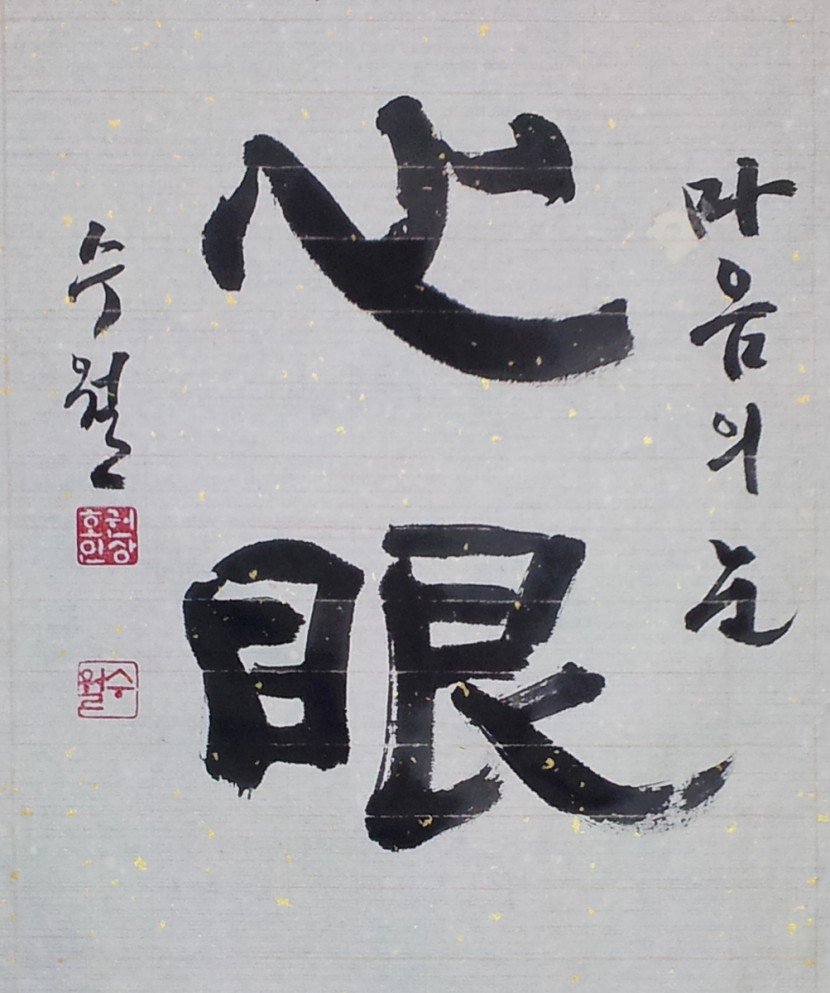 마음의 눈
心眼
수월
권상호인
수월